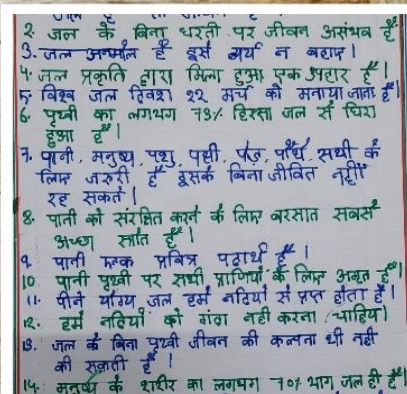 2. जल के बिना धरती पर जीवन असंभव है
3. जल अनमोल है इसे व्यर्थ न बहाए।
4. जल प्रकृति द्वारा मिला हुआ एक उपहार है।
5. विश्व जल दिवस 22 मार्च को मनाया जाता है।
6. पृथ्वी का लगभग 71% हिस्सा जल से घिरा
हुआ है।
7. पानी, मनुष्य, पशु, पक्षी, पेड़, पौधे, सभी के
लिए जरूरी है इसके बिना जीवित नहीं
रह सकते।
8. पानी को संरक्षित करने के लिए बरसात सबसे
अच्छा स्रोत है।
9. पानी एक पवित्र पदार्थ है।
10. पानी पृथ्वी पर सभी प्राणियों के लिए अमृत है।
11. पीने योग्य जल हमें नदियों से प्राप्त होता है।
12. हमें नदियों को गंदा नही करना चाहिये।
13. जल के बिना पृथ्वी जीवन की कल्पना भी नही
की सकती है।
14. मनुष्य के शरीर का लगभग 70% भाग जल ही है।